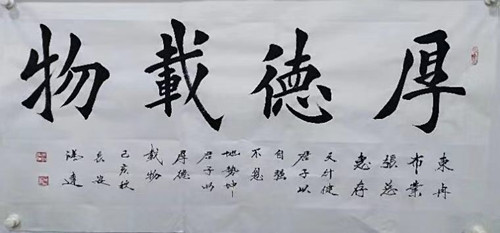 厚德載物
東冉
布業
張總
惠存
天行健
君子以
自強
不息
地勢坤
君子以
厚德
載物
己亥秋
長安